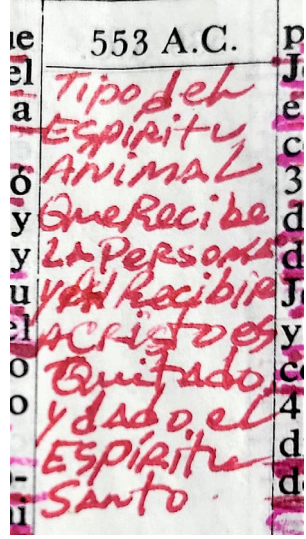 553 A.C.
Tipo del
ESPIRITU
ANIMAL
Que Recibe
LA PERSONA
Y AL Recibir
A CRISTO ES
Quitado,
y dado el
ESPÍRITU
SANTO.